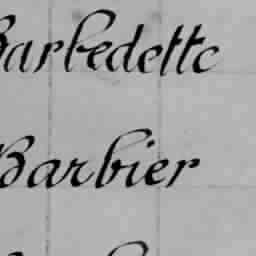 Barbedette
Barbier